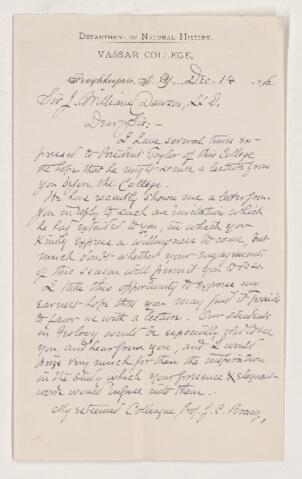 DEPARTMENT OF NATURAL HISTORY.
VASSAR COLLEGE,
Poughkeepsie, N. Y., Dec. 14
Sir J. William Dawson, LL.D.
Dear Sir:-
I have several times ex-
pressed to President Taylor of this College
the hope that he might secure a lecture from
you before the College.
He has recently shown me a letter from
you in reply to such an invitation which
he has extended to you, in which you
kindly express a willingness to come, but
much doubt whether your engagements
of this season will permit you to do so.
I take this opportunity to express my
earnest hope that you may find it possible
to favor us with a lecture. Our students
in Geology would be especially glad to see
you and hear from you, and I would
prize very much for them the inspiration
in the study which your presence & eloquent
words would infuse into them.
My esteemed Colleague, Prof. J. C. Bracq,